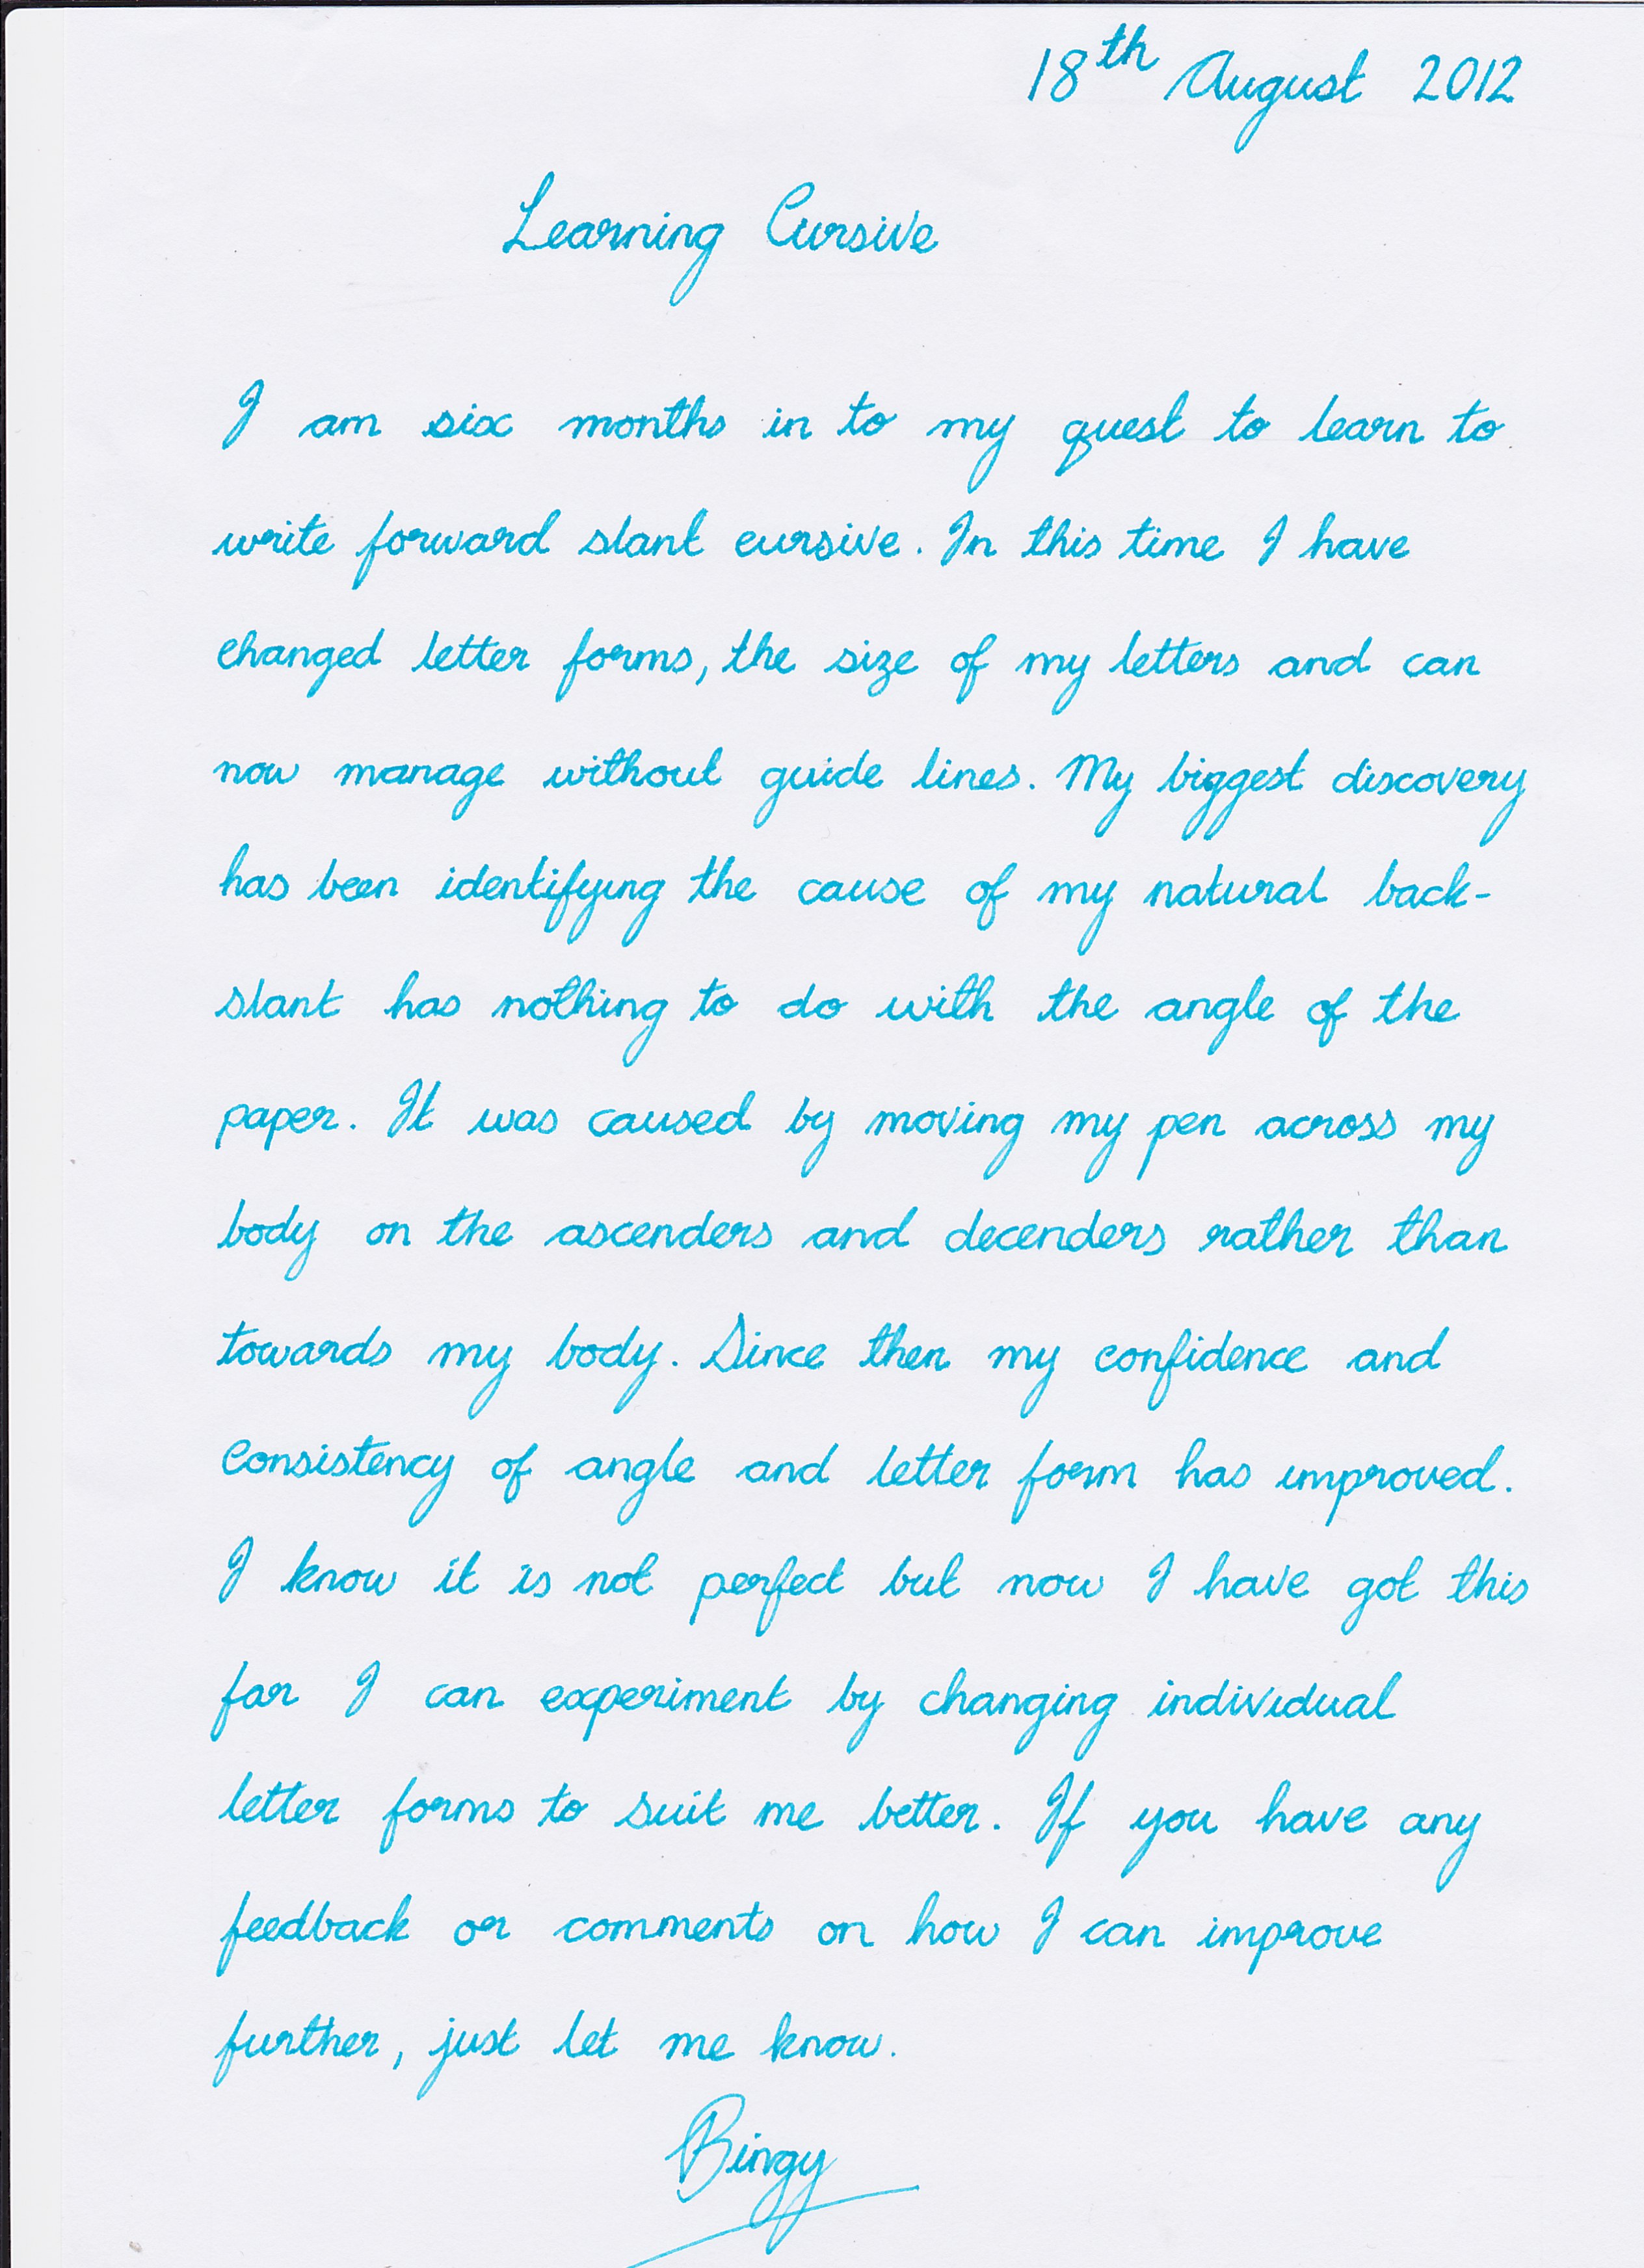 18th August 2012
Learning Cursive
I am six months in to my quest to learn to
write forward slant cursive. In this time I have
changed letter forms, the size of my letters and can
now manage without guide lines. My biggest discovery
has been identifying the cause of my natural back-
slant has nothing to do with the angle of the
paper. It was caused by moving my pen across my
body on the ascenders and decenders rather than
towards my body. Since then my confidence and
consistency of angle and letter form has improved.
I know it is not perfect but now I have got this
far I can experiment by changing individual
letter forms to suit me better. If you have any
feedback or comments on how I can improve
further, just let me know.
Bingy